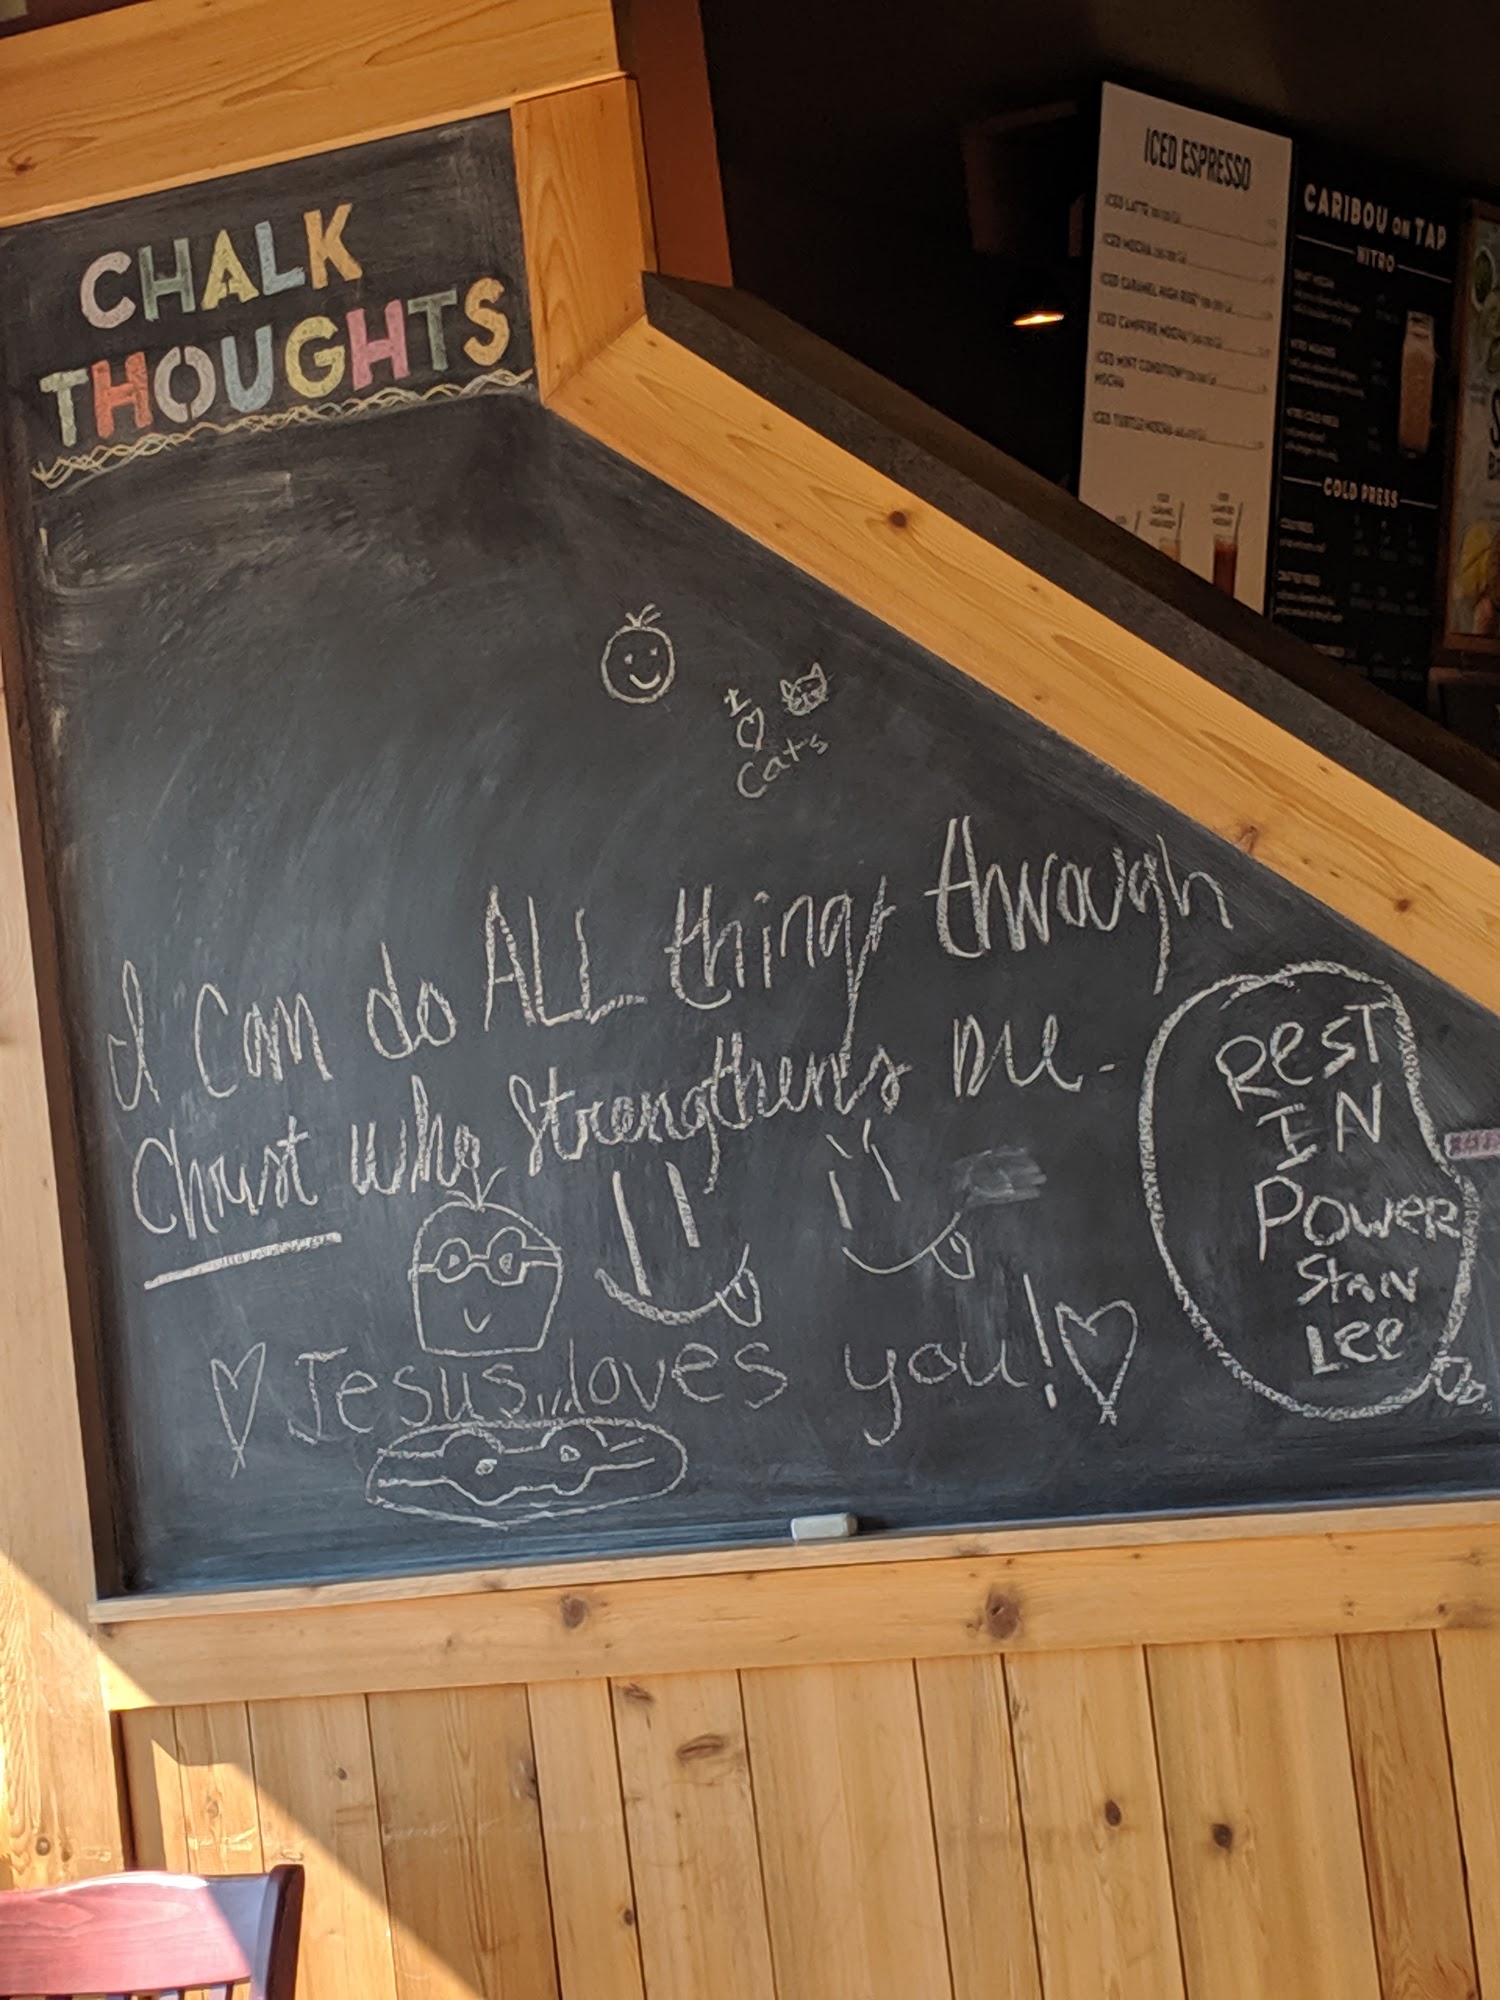 CHALK
THOUGHTS
I
Cats
I can do ALL things through
Christ who strengthens me.
Jesus loves you!
REST
IN
POWER
Stan
Lee
ICED ESPRESSO
ICED LATTE
ICED MOCHA
ICED CARAMEL HIGH RISE
ICED CAMPFIRE MOCHA
ICED MINT CONDITION
MOCHA
ICED TURTLE MOCHA
CARIBOU ON TAP
NITRO
COLD PRESS